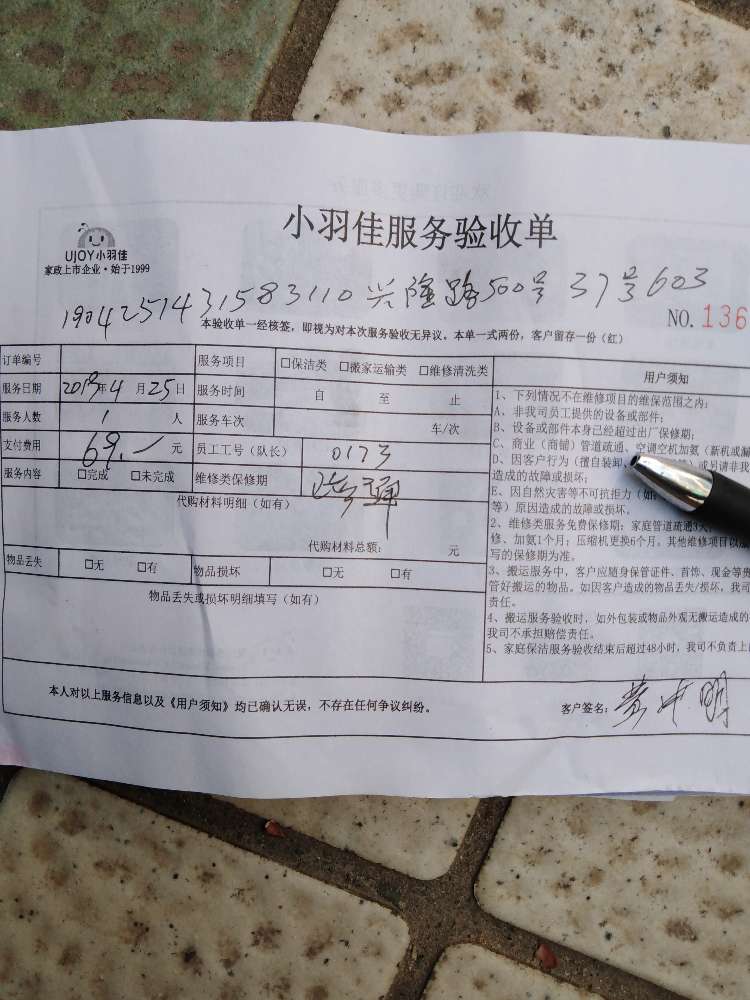 小羽佳服务验收单
UJOY小羽佳
家政上市企业·始于1999
1904251431583110 兴隆路500号 37号603
NO.136
本验收单一经核签，即视为对本次服务验收无异议。本单一式两份，客户留存一份（红）
订单编号 服务项目 □保洁类 □搬家运输类 □维修清洗类
服务日期 2019年4月25日 服务时间 自 至 止
服务人数 1 人 服务车次 车/次
支付费用 69.— 元 员工工号（队长） 0173
服务内容 □完成 □未完成 维修类保修期
代购材料明细（如有）
代购材料总额： 元
物品丢失 □无 □有 物品损坏 □无 □有
物品丢失或损坏明细填写（如有）
用户须知
1、下列情况不在维修项目的维保范围之内：
A、非我司员工提供的设备或部件；
B、设备或部件本身已经超过出厂保修期；
C、商业（商铺）管道疏通、空调空机加氨（新机或漏
D、因客户行为（擅自装卸、 ）或另请非我
造成的故障或损坏；
E、因自然灾害等不可抗拒力（如
等）原因造成的故障或损坏。
2、维修类服务免费保修期：家庭管道疏通3天
修、加氨1个月；压缩机更换6个月。其他维修项目以
写的保修期为准。
3、搬运服务中，客户应随身保管证件、首饰、现金等贵
管好搬运的物品。如因客户造成的物品丢失/损坏，我司
责任。
4、搬运服务验收时，如外包装或物品外观无搬运造成的
我司不承担赔偿责任。
5、家庭保洁服务验收结束后超过48小时，我司不负责上
本人对以上服务信息以及《用户须知》均已确认无误，不存在任何争议纠纷。
客户签名：